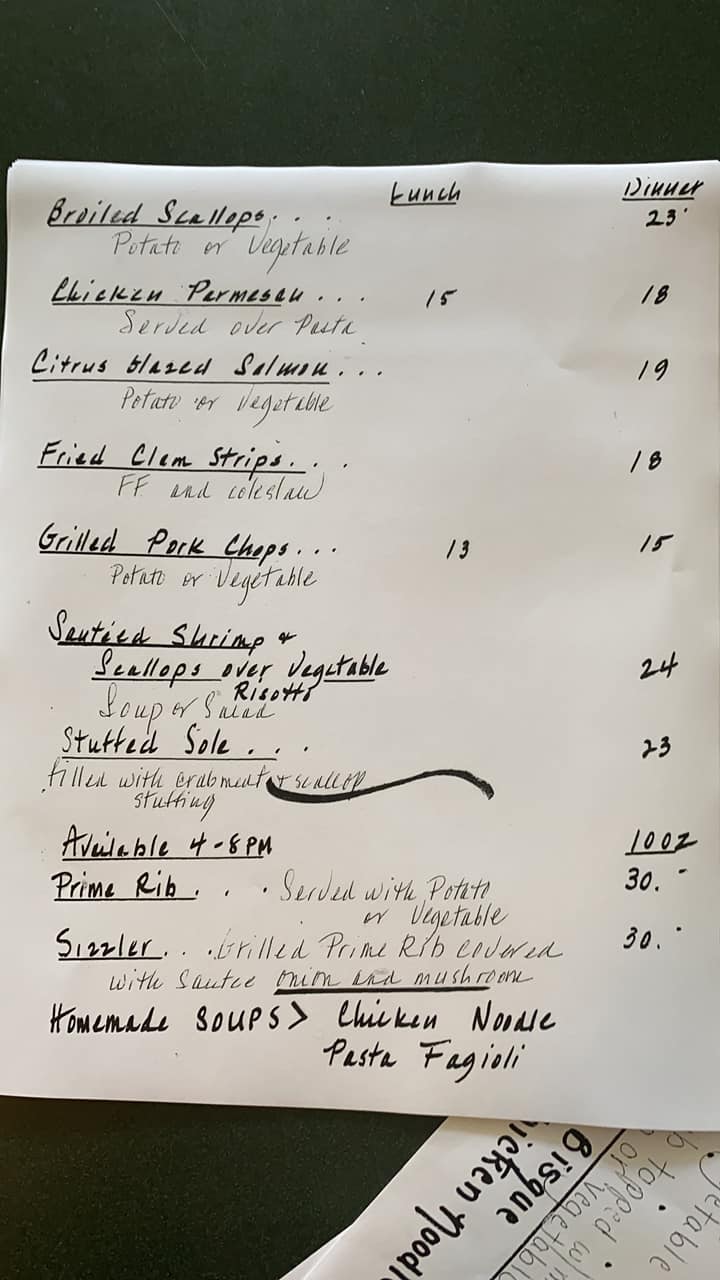 Lunch Dinner
Broiled Scallops. . . 23
Potato or Vegetable
Chicken Parmesan . . . 15 18
Served over Pasta
Citrus Glazed Salmon . . . 19
Potato or Vegetable
Fried Clam Strips. . . 18
FF and coleslaw
Grilled Pork Chops . . . 13 15
Potato or Vegetable
Sautéed Shrimp &
Scallops over Vegetable 24
Risotto
Soup or Salad
Stuffed Sole . . . 23
filled with crabmeat & scallop
stuffing
Available 4-8 PM 10oz
Prime Rib . . . Served with Potato 30.-
or Vegetable
Sizzler . . . Grilled Prime Rib covered 30.-
with Sautee onion and mushroom
Homemade Soups > Chicken Noodle
Pasta Fagioli
Bisque
topped
or vegetable